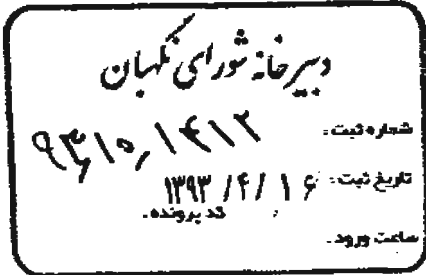 دبیرخانه شورای نگهبان
شماره ثبت:
تاریخ ثبت: ۱۳۹۳ / ۴ / ۱۶
کد پرونده:
ساعت ورود: